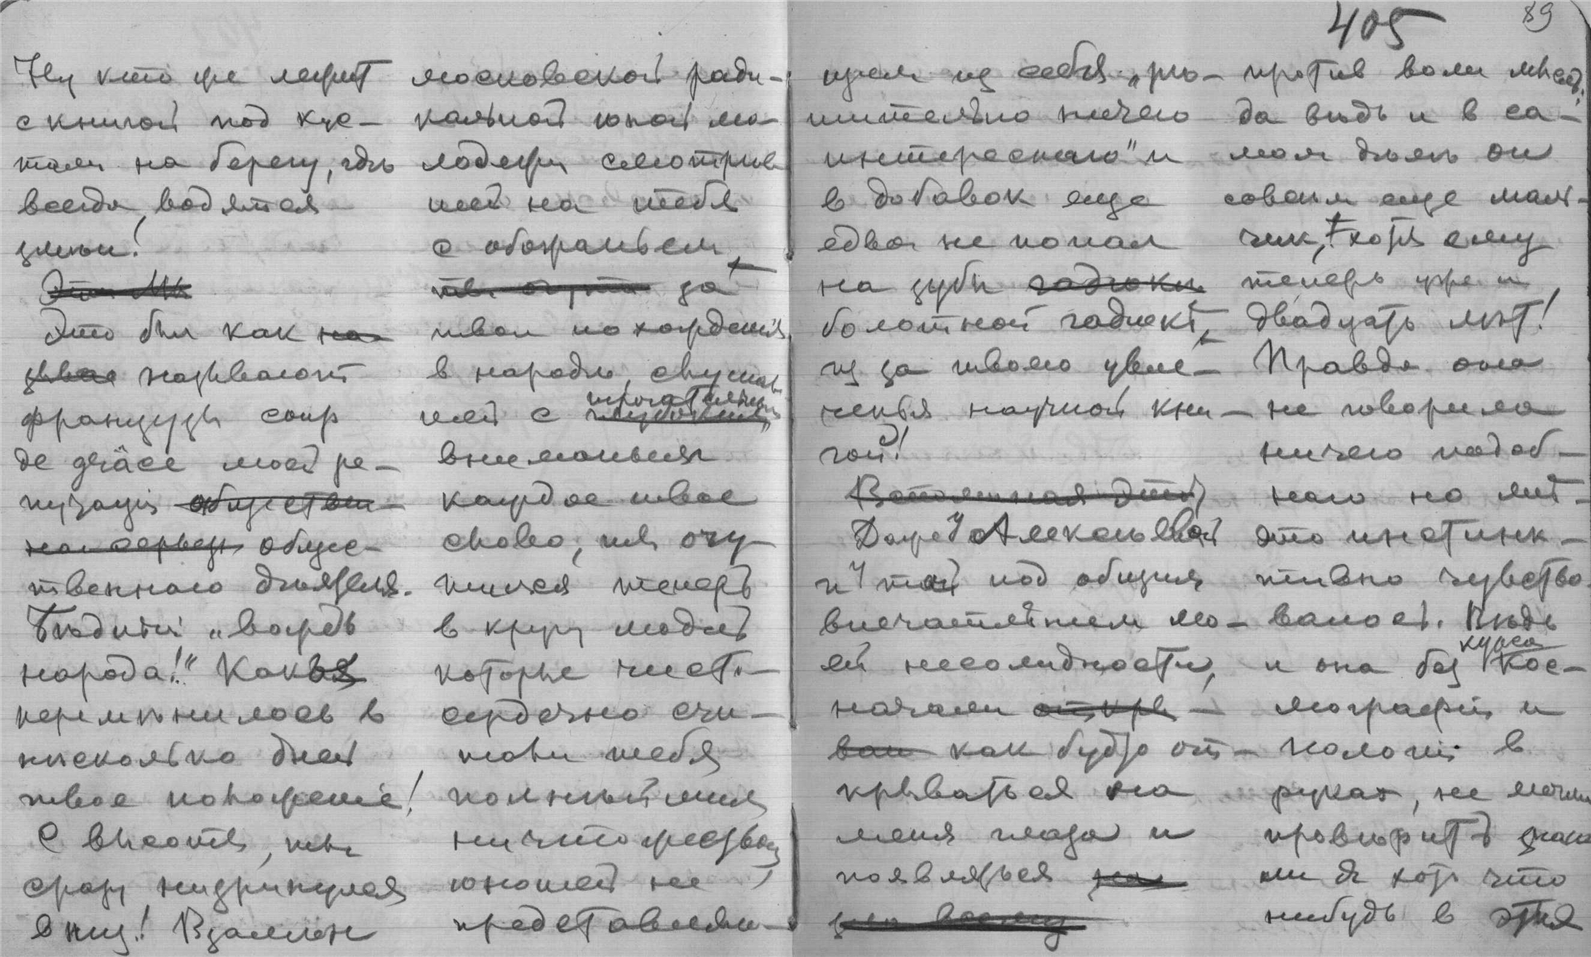 405
89
Ну кто же лежит
с книгой под кус-
тами на берегу, где
всегда водятся
змеи!
Это был как
называют
французы coup
de grâce моей ре-
путации
обще-
ственного деятеля.
Бедный „вождь
народа!“ Как
переменилось в
несколько дней
твое положение!
С высоты, ты
сразу низринулся
в низ! Взамен
московской ради-
кальной юной мо-
лодежи смотрев
шей на тебя
с обожаньем
за
твои похождения
в народе, слушав
шей с трогательным
вниманьем
каждое твое
слово, ты очу-
тился теперь
в кругу людей
которые чисто-
сердечно счи-
тали тебя
полнейшим
ничтожеством
юношей не
представляю-
щем из себя „ре-
шительно ничего
интереснаго“ и
в добавок еще
едва не попал
на зубы
болотной гадюке,
из за твоего увле-
ченья научной кни-
гой!
Дарье Алексеевной
и той под общим
впечатленьем мо-
ей несолидности,
начали
как будто от-
крываться на
меня глаза и
появляться
против воли мысль:
да ведь и в са-
мом деле он
совсем еще маль-
чик, хотя ему
теперь уже и
двадцать лет!
Правда она
не говорила
ничего подоб-
наго но мной
это инстинк-
тивно чувство
валось. Ведь
и она без курса Кос-
мографии и
в
руках, не могла
проверить
ли я хоть что
нибудь в этих